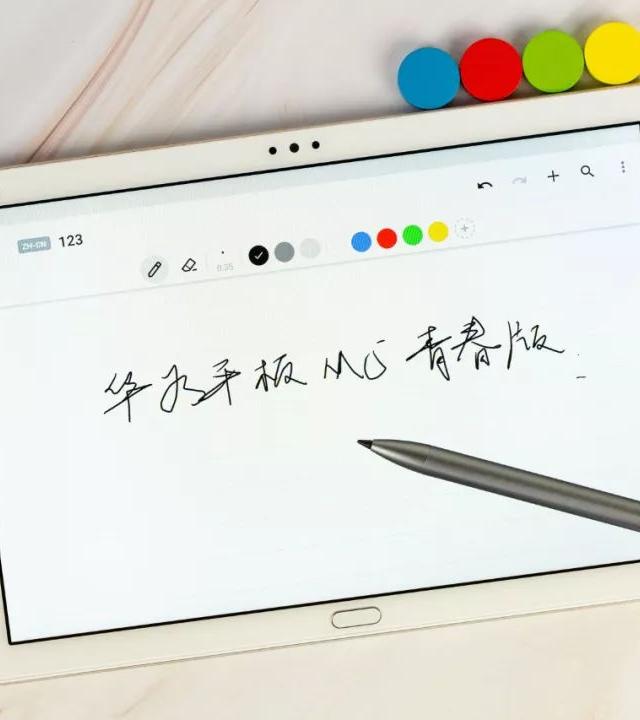 ZH-CN 123
0.35
华为平板 M5 青春版